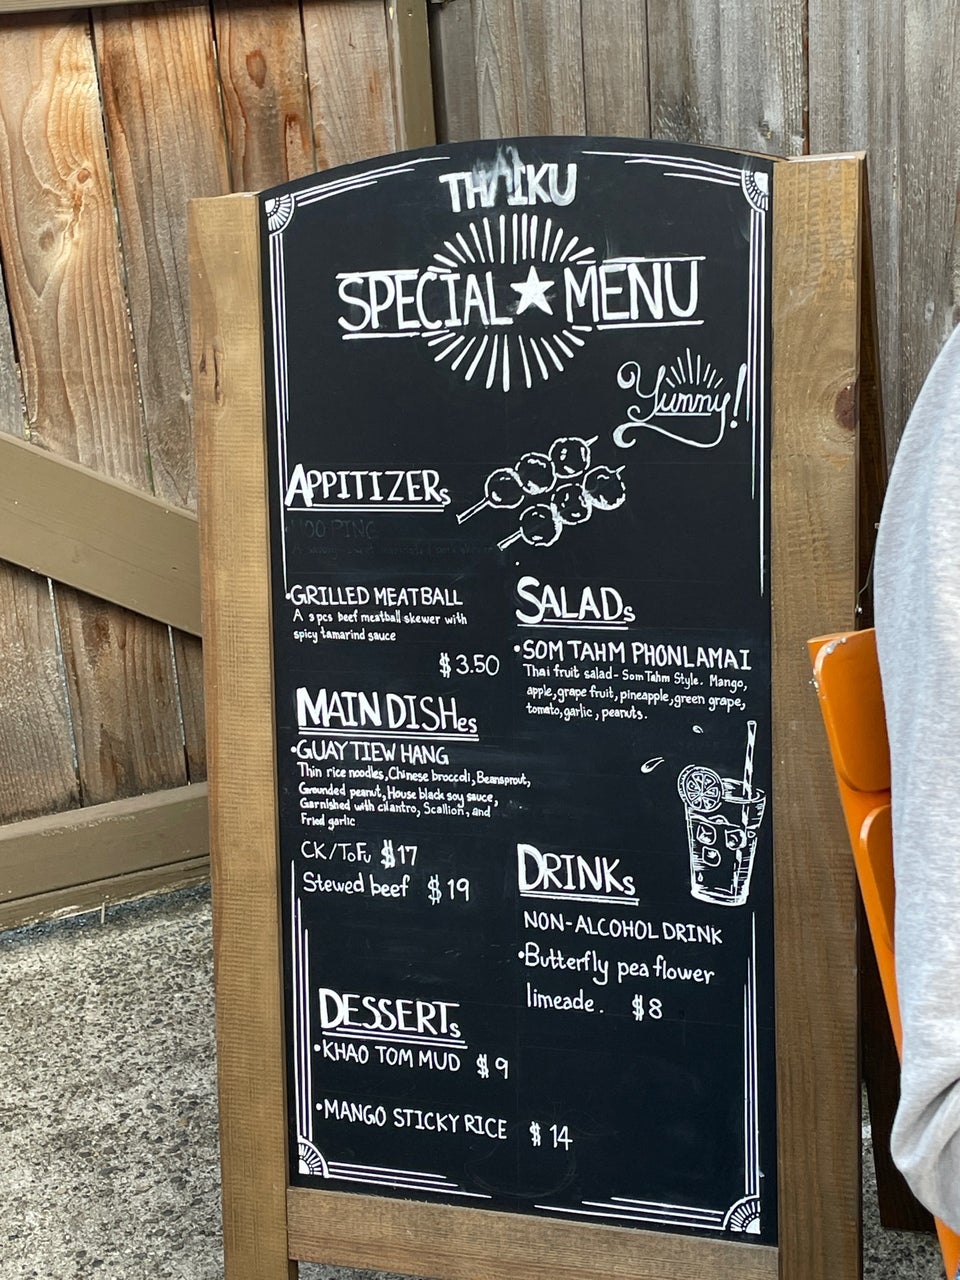 THAIKU
SPECIAL ★ MENU
Yummy!
APPITIZERs
•GRILLED MEATBALL
A 3 pcs beef meatball skewer with
spicy tamarind sauce
$3.50
MAIN DISHes
•GUAY TIEW HANG
Thin rice noodles, Chinese broccoli, Beansprout,
Grounded peanut, House black soy sauce,
Garnished with cilantro, Scallion, and
Fried garlic
CK/ToFu $17
Stewed beef $19
DESSERTs
•KHAO TOM MUD $9
•MANGO STICKY RICE $14
SALADs
•SOM TAHM PHONLAMAI
Thai fruit salad - Som Tahm Style. Mango,
apple, grape fruit, pineapple, green grape,
tomato, garlic, peanuts.
DRINKs
NON-ALCOHOL DRINK
•Butterfly pea flower
limeade. $8